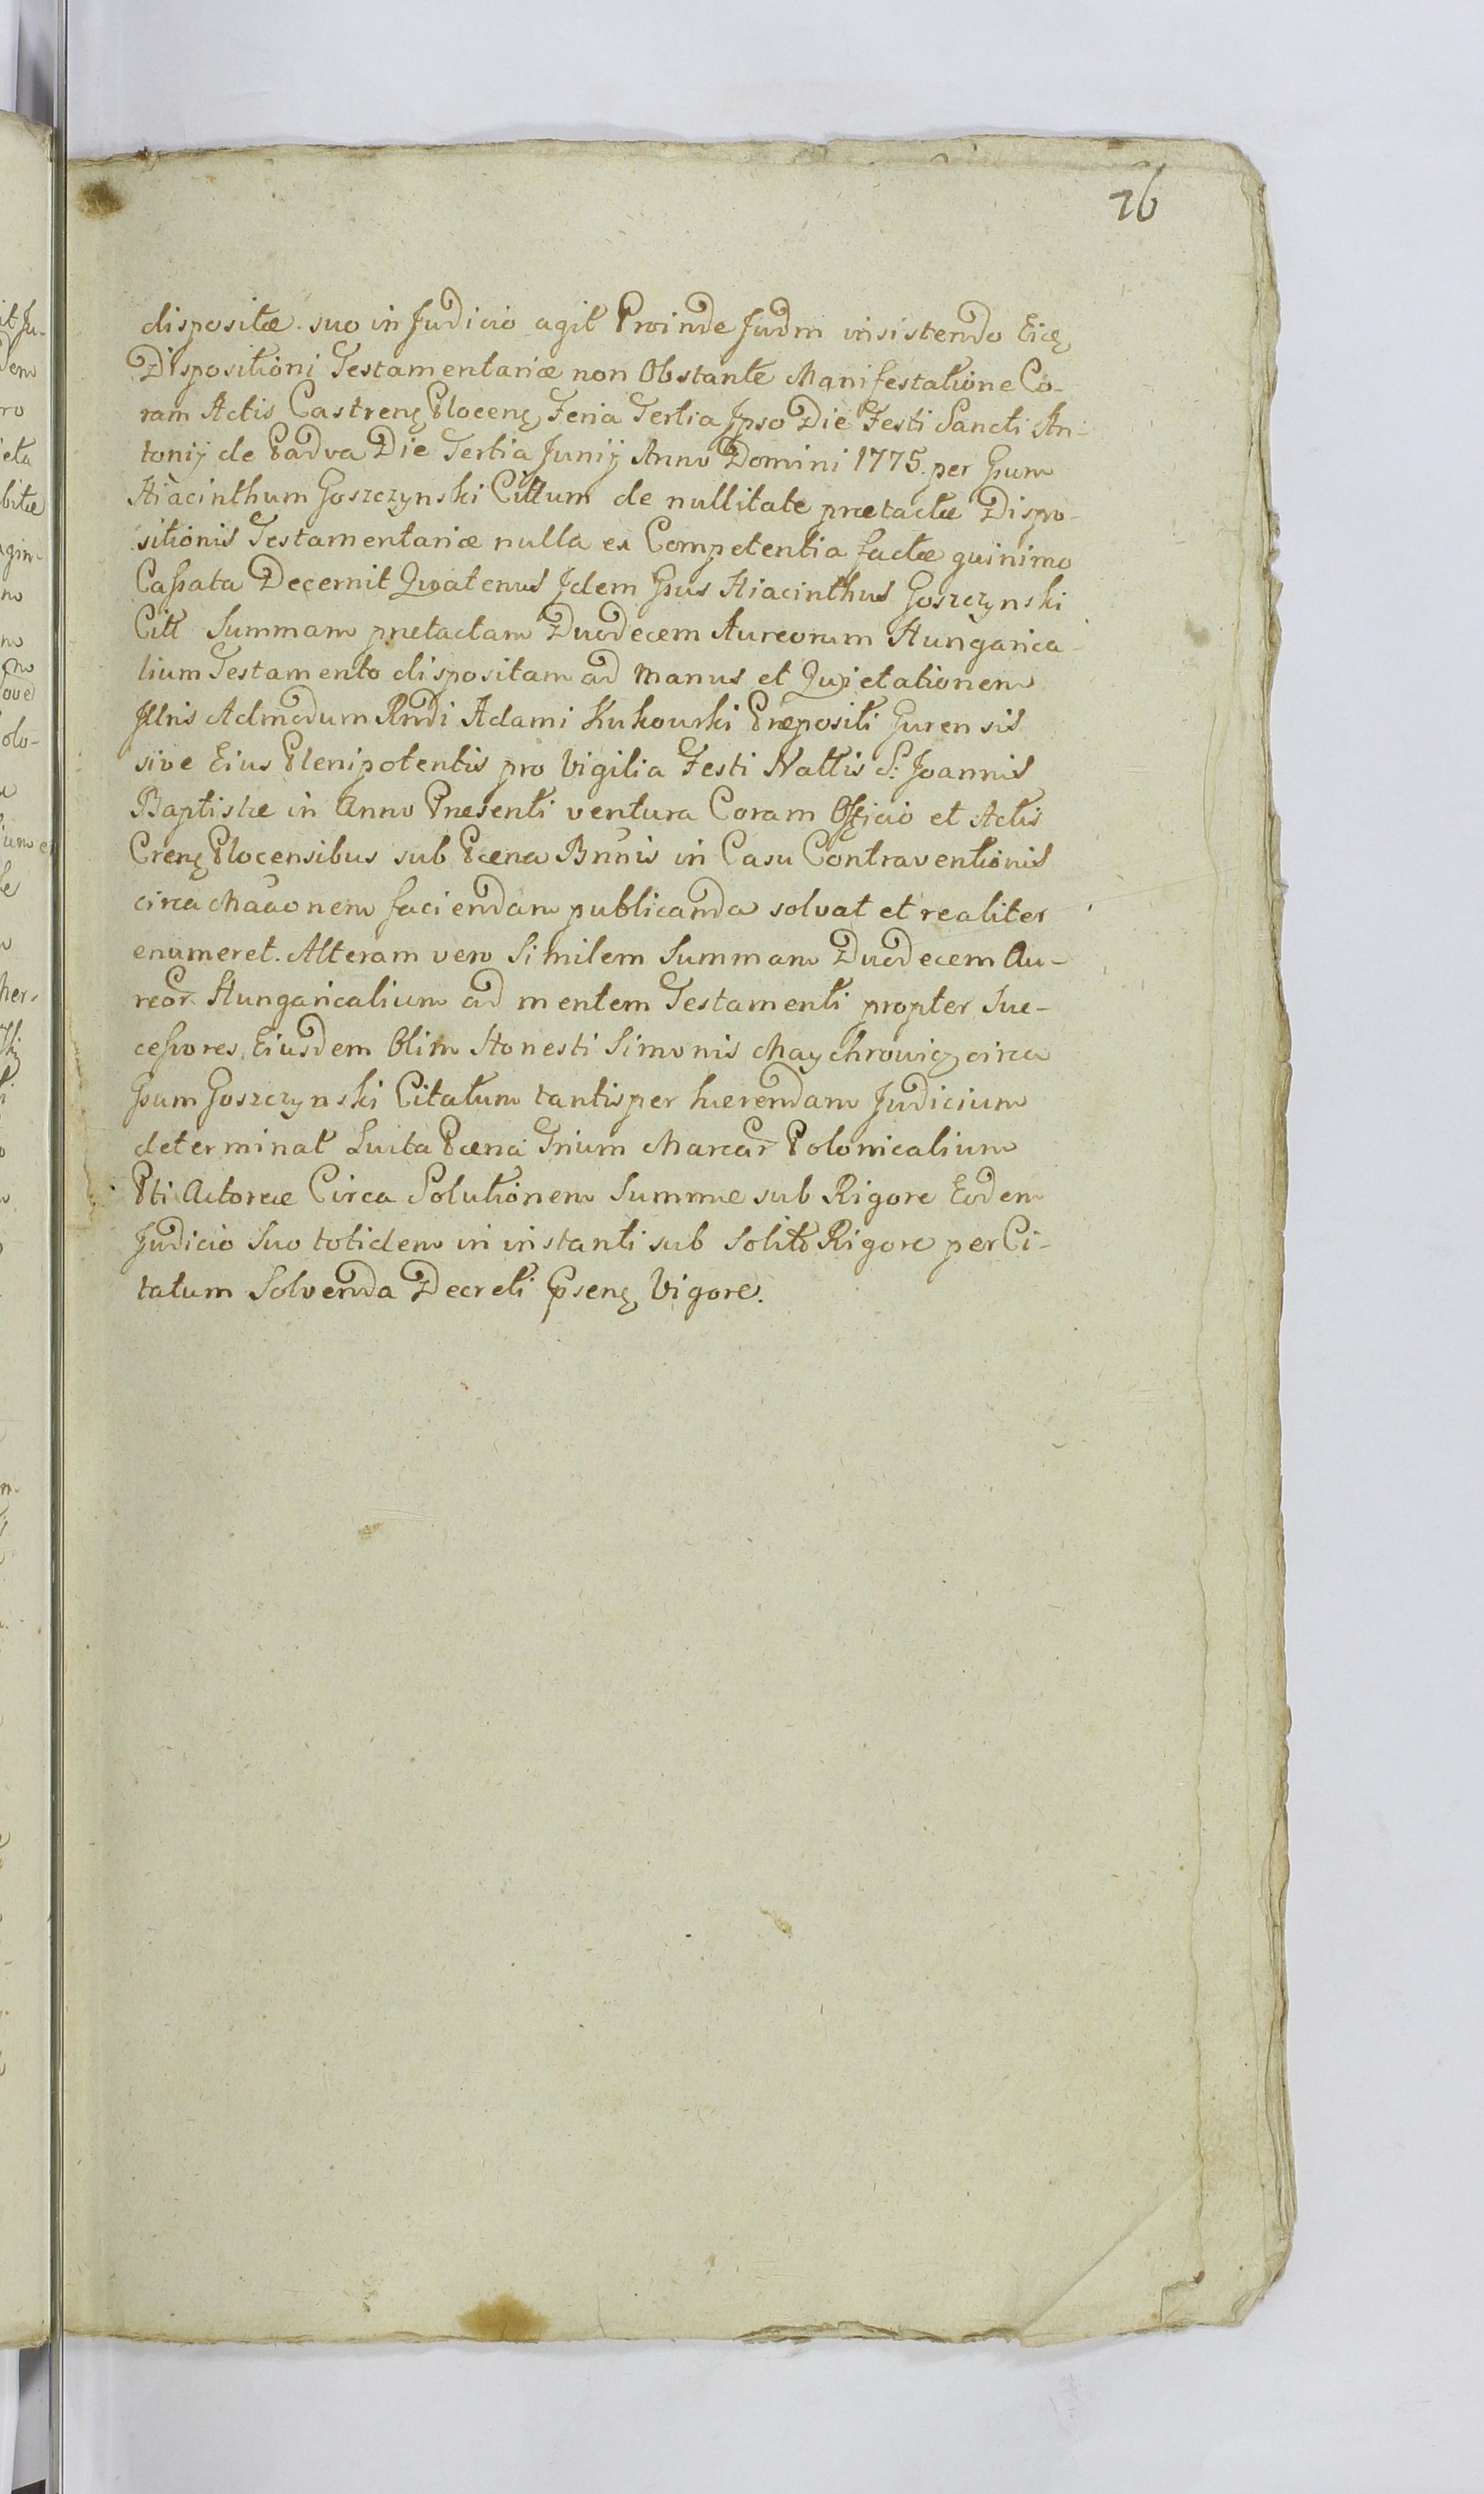 76
dispositæ. suo in Judicio agit Proinde Judm insistendo
Dispositioni Testamentariæ non Obstante Manifestatione Co-
ram Actis Castren Plocen Feria Tertia Jpso Die Festi Sancti An-
tonij de Padva Die Tertia Junij Anno Domini 1775. per Gsum
Hiacinthum Goszczynski Cittum de nullitate prætactæ Dispo-
sitionis Testamentariæ nulla ex Competentia factæ quinimo
Cassata Decernit Quatenus Jdem Gsus Hiacinthus Goszczynski
Citt Summam prætactam Duodecem Aureorum Hungarica-
lium Testamento dispositam ad manus et Quietationem
Jllris Admodum Rndi Adami Kukowski Præpositi Gurensis
sive Eius Plenipotentis pro Vigilia Festi Nattis S: Joannis
Baptistæ in Anno Præsenti ventura Coram Officio et Actis
Cren Plocensibus sub Pæna Bnnis in Casu Contraventionis
circa faciendam publicanda solvat et realiter
enumeret. Alteram vero Similem Summam Duodecem Au-
reor Hungaricalium ad mentem Testamenti propter Suc-
cessores Eiusdem Olim Honesti Simonis Maychrowicz circa
Gsum Goszczynski Citatum tantisper hærendam Judicium
determinat Luita Pæna Trium Marcar Polonicalium
Pti Actoreæ Circa Solutionem Summæ sub Rigore Eodem
Judicio Suo totidem in instanti sub Solito Rigore per Ci-
tatum Solvenda Decreti Vigore.